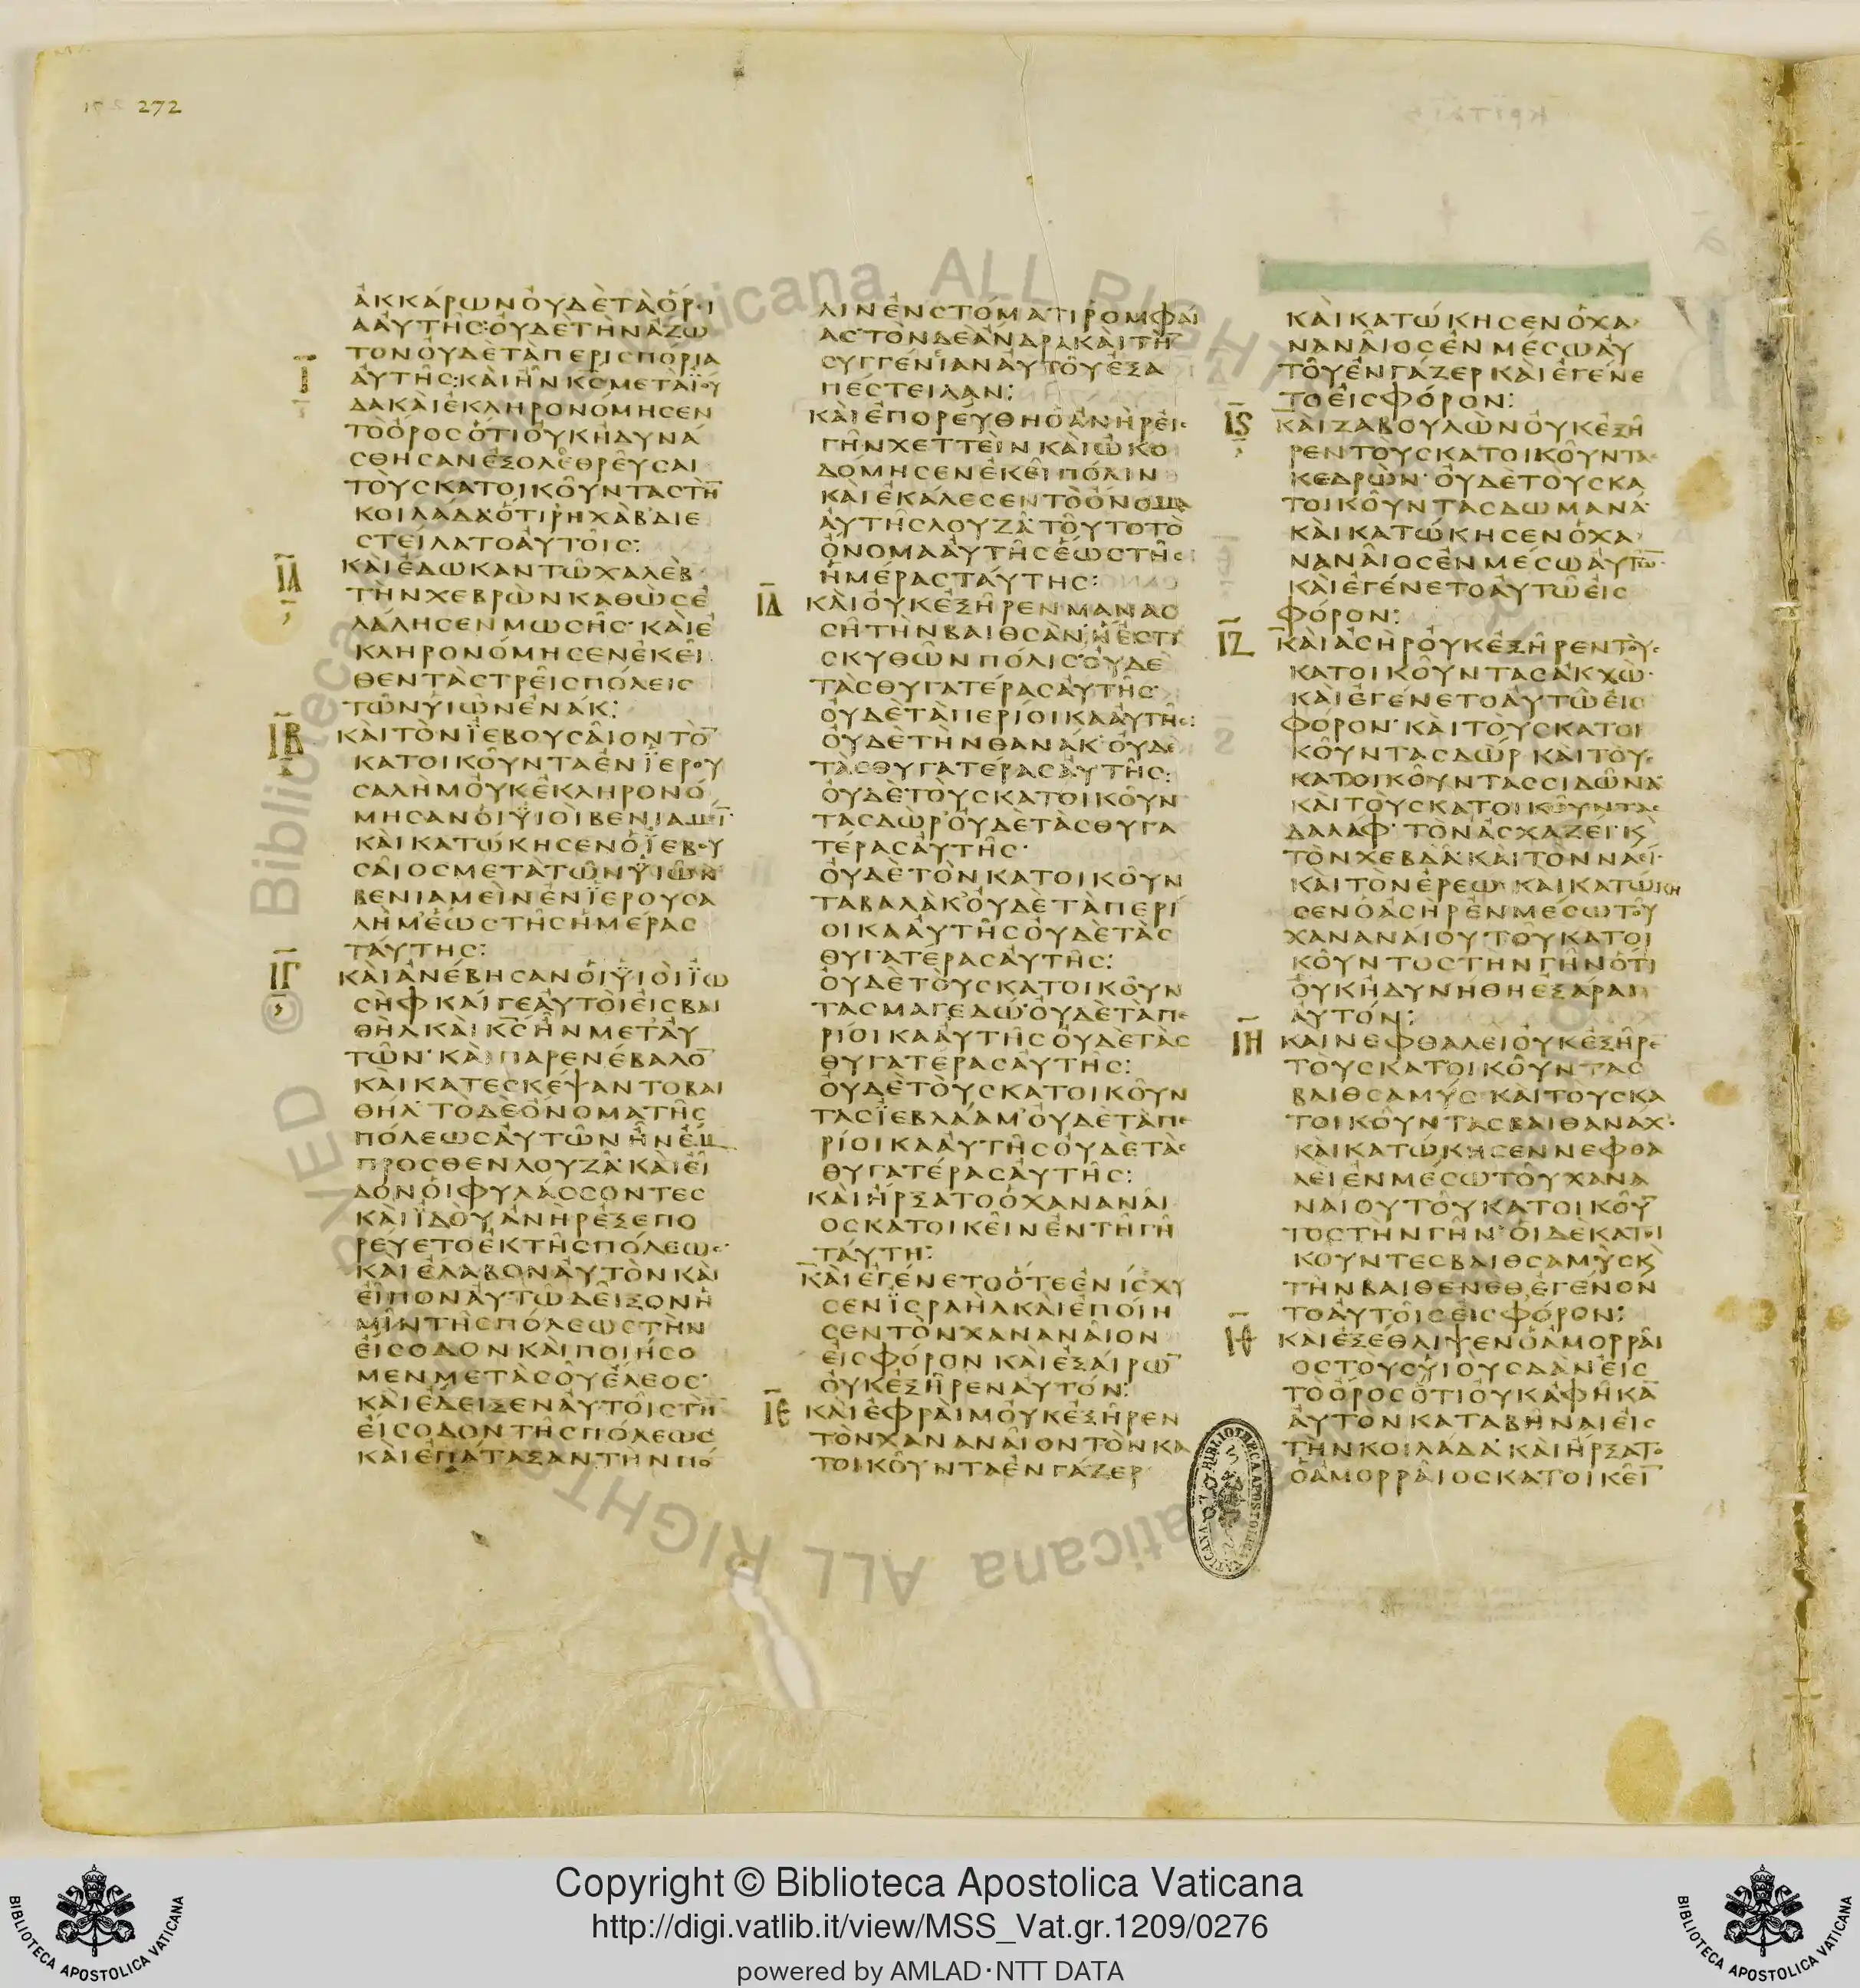 272
ἀκκάρωνοὐδὲτὰὅρι
ααὐτῆς·οὐδὲτὴνἄζω
τονοὐδὲτὰπερισπόρια
Ι̅
αὐτῆς:καὶἦνκ̅ς̅μετὰϊού
δακαὶἐκληρονόμησεν
τὸὄροςὅτιοὐκἠδυνά
σθησανἐξολεθρεῦσαι
τοὺςκατοικοῦνταςτὴ̅
κοιλάδα·ὅτιρηχὰβδιε
στείλατοαὐτοῖς:
ΙΑ̅
καὶἔδωκαντῷχαλὲβ
τὴνχεβρὼνκαθὼςἐ
λάλησενμωσῆς·καὶἐ
κληρονόμησενἐκεῖ
θεντὰςτρεῖςπόλεις
τῶνυἱῶνἐνάκ:
ΙΒ̅
καὶτὸνϊεβουσαῖοντὸ̅
κατοικοῦνταἐνϊερου
σαλὴμοὐκἐκληρονό
μησανοἱϋἱοὶβενιαμι̅·
καὶκατῴκησενὁϊεβου
σαῖοςμετὰτῶνϋἱῶν
βενιαμεὶνἐνϊερουσα
λὴμ·ἕωςτῆςἡμέρας
ταύτης:
ΙΓ̅
καὶἀνέβησανοἱϋἱοὶϊω
σὴφκαίγεαὐτοὶεἰςβαι
θὴλκαὶκ̅ς̅ἦνμετ'αὐ
τῶν·καὶπαρενέβαλο̅
καὶκατεσκέψαντοβαι
θήλ·τὸδὲὄνοματῆς
πόλεωςαὐτῶνἦνἔμ
προσθενλουζά·καὶεἶ
δονοἱφυλάσσοντες
καὶϊδοὺἀνὴρἐξεπο
ρεύετοἐκτῆςπόλεως·
καὶἔλαβοναὐτὸνκαὶ
εἶποναὐτῷδεῖξονἡ
μῖντῆςπόλεωςτὴν
εἴσοδονκαὶποιήσο
μενμετὰσοῦἔλεος·
καὶἔδειξεναὐτοῖςτὴ̅
εἴσοδοντῆςπόλεως
καὶἐπάταξαντὴνπό
λινἐνστόματιρομφαί
ας·τὸνδὲἄνδρακαὶτὴ̅
συγγένιαναὐτοῦἐξα
πέστειλαν:
καὶἐπορεύθηὁἀνὴρεἰς
γῆνχεττεὶνκαὶᾠκο
δόμησενἐκεῖπόλιν
καὶἐκάλεσεντὸὄνομα
αὐτῆςλουζά·τοῦτοτὸ
ὄνομααὐτῆςἕωςτῆς
ἡμέραςταύτης:
ΙΔ̅
καὶοὐκἐξῆρενμανασ
σῆτὴνβαιθσάν·ἥἐστι
σκυθῶνπόλις·οὐδὲ
τὰςθυγατέραςαὐτῆς·
οὐδὲτὰπερίοικααὐτῆς:
οὐδὲτὴνθανάκ·οὐδὲ
τὰςθυγατέραςαὐτῆς:
οὐδὲτοὺςκατοικοῦν
ταςδώρ·οὐδὲτὰςθυγα
τέραςαὐτῆς·
οὐδὲτὸνκατοικοῦν
ταβαλὰκ'οὐδὲτὰπερί
οικααὐτῆςοὐδὲτὰς
θυγατέραςαὐτῆς:
οὐδὲτοὺςκατοικοῦν
ταςμαγεδώ·οὐδὲτὰπε
ρίοικααὐτῆςοὐδὲτὰς
θυγατέραςαὐτῆς:
οὐδὲτοὺςκατοικοῦν
ταςϊεβλαάμ·οὐδὲτὰπε
ρίοικααὐτῆςοὐδὲτὰς
θυγατέραςαὐτῆς:
καὶἤρξατοὁχαναναῖ
οςκατοικεῖνἐντῇγῇ
ταύτῃ:
καὶἐγένετοὅτεἐνίσχυ
σενϊσραὴλκαὶἐποίη
σεντὸνχαναναῖον
εἰςφόρονκαὶἐξαίρω̅
οὐκἐξῆρεναὐτόν:
ΙΕ̅
καὶἐφράιμοὐκἐξῆρεν
τὸνχαναναῖοντὸνκα
τοικοῦνταἐνγάζερ
καὶκατῴκησενὁχα
ναναῖοςἐνμέσῳαὐ
τοῦἐνγάζερκαὶἐγένε
τοεἰςφόρον:
ΙϚ̅
καὶζαβουλὼνοὐκἐξῆ
ρεντοὺςκατοικοῦντας
κεδρών·οὐδὲτοὺςκα
τοικοῦνταςδωμανά·
καὶκατῴκησενὁχα
ναναῖοςἐνμέσῳαὐτῶ̅·
καὶἐγένετοαὐτῷεἰς
φόρον:
ΙΖ̅
καὶἀσὴροὐκἐξῆρεντοὺς
κατοικοῦνταςἀκχώ·
καὶἐγένετοαὐτῷεἰς
φόρον·καὶτοὺςκατοι
κοῦνταςδὼρκαὶτοὺς
κατοικοῦνταςσιδῶνα·
καὶτοὺςκατοικοῦντας
δαλάφ·τὸνἀσχαζεί·κ̀
τὸνχεβδά·καὶτὸνναεί·
καὶτὸνἐρεώ·καὶκατῴκη
σενὁἀσὴρἐνμέσῳτοῦ
χαναναίουτοῦκατοι
κοῦντοςτὴνγῆνὅτι
οὐκἠδυνήθηἐξᾶραι
αὐτόν:
ΙΗ̅
καὶνεφθαλεὶοὐκἐξῆρε
τοὺςκατοικοῦντας
βαιθσαμύς·καὶτοὺςκα
τοικοῦνταςβαιθανάχ·
καὶκατῴκησεννεφθα
λεὶἐνμέσῳτοῦχανα
ναίουτοῦκατοικοῦ̅
τοςτὴνγῆν·οἱδὲκατοι
κοῦντεςβαιθσαμὺςκ̀
τὴνβαιθενὲθἐγένον
τοαὐτοῖςεἰςφόρον:
ΙΘ̅
καὶἐξέθλιψενὁἀμορραῖ
οςτοὺςυἱοὺςδὰνεἰς
τὸὄροςὅτιοὐκἀφῆκα̅
αὐτὸνκαταβῆναιεἰς
τὴνκοιλάδα·καὶἤρξατο
ὁἀμορραῖοςκατοικεῖ̅
Copyright © Biblioteca Apostolica Vaticana
http://digi.vatlib.it/view/MSS_Vat.gr.1209/0276
powered by AMLAD·NTT DATA
BIBLIOTECA APOSTOLICA VATICANA
BIBLIOTECA APOSTOLICA VATICANA